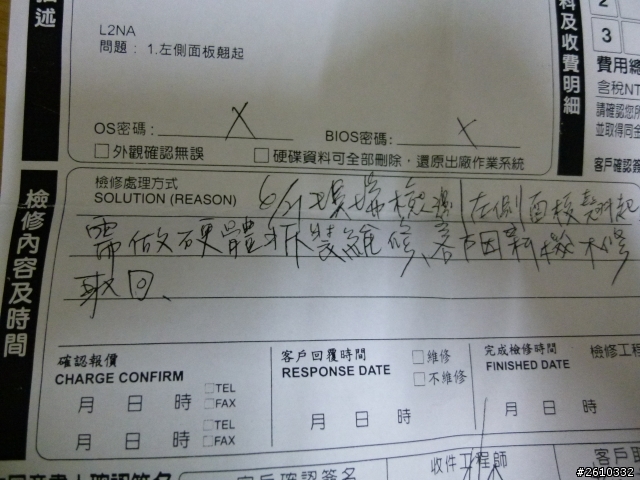 描述
料及收費明細
L2NA
問題：1.左側面板翹起
2
3
費用總
含稅NT
請確認您所
並取得同
客戶確認簽
OS密碼：X
BIOS密碼：X
□外觀確認無誤 □硬碟資料可全部刪除，還原出廠作業系統
檢修內容及時間
檢修處理方式
SOLUTION (REASON)
6/21現場檢測 左側面板翹起
需做硬體拆裝維修,客戶因新機不修
取回、
確認報價
CHARGE CONFIRM
月 日 時 □TEL
□FAX
月 日 時 □TEL
□FAX
客戶回覆時間 □維修
RESPONSE DATE □不維修
月 日 時
完成檢修時間
FINISHED DATE
月 日 時
檢修工程
客戶確認簽名
收件工程師
客戶取
#2610332